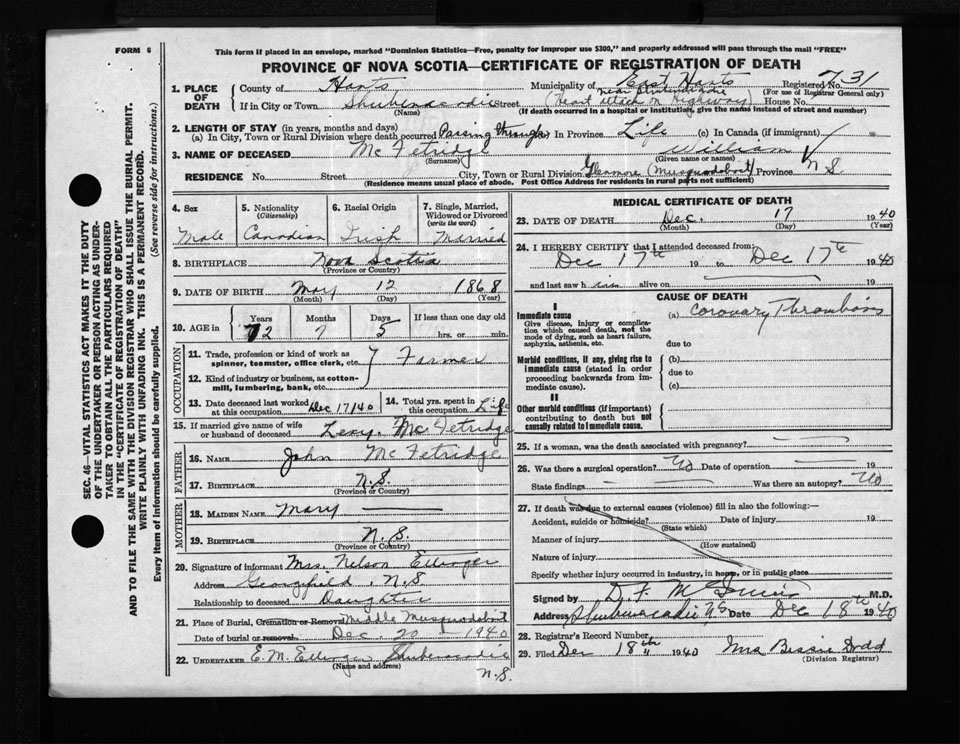 FORM 6
This form if placed in an envelope, marked "Dominion Statistics—Free, penalty for improper use $300," and properly addressed will pass through the mail "FREE"
PROVINCE OF NOVA SCOTIA—CERTIFICATE OF REGISTRATION OF DEATH
1. PLACE OF DEATH County of Hants Municipality of East Hants Registered No. 731
(For use of Registrar General only)
If in City or Town Shubenacadie Street (heart attack on highway) House No.
(Name) (If death occurred in a hospital or institution, give the name instead of street and number)
2. LENGTH OF STAY (in years, months and days)
(a) In City, Town or Rural Division where death occurred Passing through (b) In Province Life (c) In Canada (if immigrant)
3. NAME OF DECEASED McFetridge William
(Surname) (Given name or names)
RESIDENCE No. Street City, Town or Rural Division (Musquodoboit) Province N S
(Residence means usual place of abode. Post Office Address for residents in rural parts not sufficient)
4. Sex 5. Nationality (Citizenship) 6. Racial Origin 7. Single, Married, Widowed or Divorced (write the word)
Male Canadian Irish Married
8. BIRTHPLACE Nova Scotia
(Province or Country)
9. DATE OF BIRTH May 12 1868
(Month) (Day) (Year)
10. AGE in Years Months Days If less than one day old
72 7 5 hrs. or min.
OCCUPATION
11. Trade, profession or kind of work as spinner, teamster, office clerk, etc. Farmer
12. Kind of industry or business, as cotton-mill, lumbering, bank, etc.
13. Date deceased last worked at this occupation Dec 17/40 14. Total yrs. spent in this occupation Life
15. If married give name of wife or husband of deceased McFetridge
FATHER
16. NAME John McFetridge
17. BIRTHPLACE N.S.
(Province or Country)
MOTHER
18. MAIDEN NAME Mary
19. BIRTHPLACE N.S.
(Province or Country)
20. Signature of informant Mrs. Nelson Ettinger
Address Georgefield, N.S
Relationship to deceased Daughter
21. Place of Burial, Cremation or Removal Middle Musquodoboit
Date of burial or removal Dec. 20 1940
22. UNDERTAKER E. M. Ettinger Shubenacadie
(Name and address) N.S.
MEDICAL CERTIFICATE OF DEATH
23. DATE OF DEATH Dec. 17 1940
(Month) (Day) (Year)
24. I HEREBY CERTIFY that I attended deceased from:
Dec 17th 19 to Dec 17th 1940
and last saw him alive on 19
CAUSE OF DEATH
I
Immediate cause (a) Coronary Thrombosis
Give disease, injury or complication which caused death, not the mode of dying, such as heart failure, asphyxia, asthenia, etc.
due to
Morbid conditions, if any, giving rise to immediate cause (stated in order proceeding backwards from immediate cause).
(b)
due to
(c)
II
Other morbid conditions (if important) contributing to death but not causally related to immediate cause.
25. If a woman, was the death associated with pregnancy?
26. Was there a surgical operation? No Date of operation 19
State findings Was there an autopsy? No
27. If death was due to external causes (violence) fill in also the following:—
Accident, suicide or homicide? Date of injury 19
(State which)
Manner of injury
(How sustained)
Nature of injury
Specify whether injury occurred in industry, in home, or in public place
Signed by D. F. M.D.
Address Shubenacadie NS Date Dec 18th 1940
28. Registrar's Record Number
29. Filed Dec 18th 1940 Mrs Bessie Dodd
(Division Registrar)
SEC. 46—VITAL STATISTICS ACT MAKES IT THE DUTY
OF THE UNDERTAKER OR PERSON ACTING AS UNDERTAKER TO OBTAIN ALL THE PARTICULARS REQUIRED
IN THE "CERTIFICATE OF REGISTRATION OF DEATH"
AND TO FILE THE SAME WITH THE DIVISION REGISTRAR WHO SHALL ISSUE THE BURIAL PERMIT.
WRITE PLAINLY WITH UNFADING INK. THIS IS A PERMANENT RECORD.
Every item of Information should be carefully supplied. (See reverse side for instructions.)